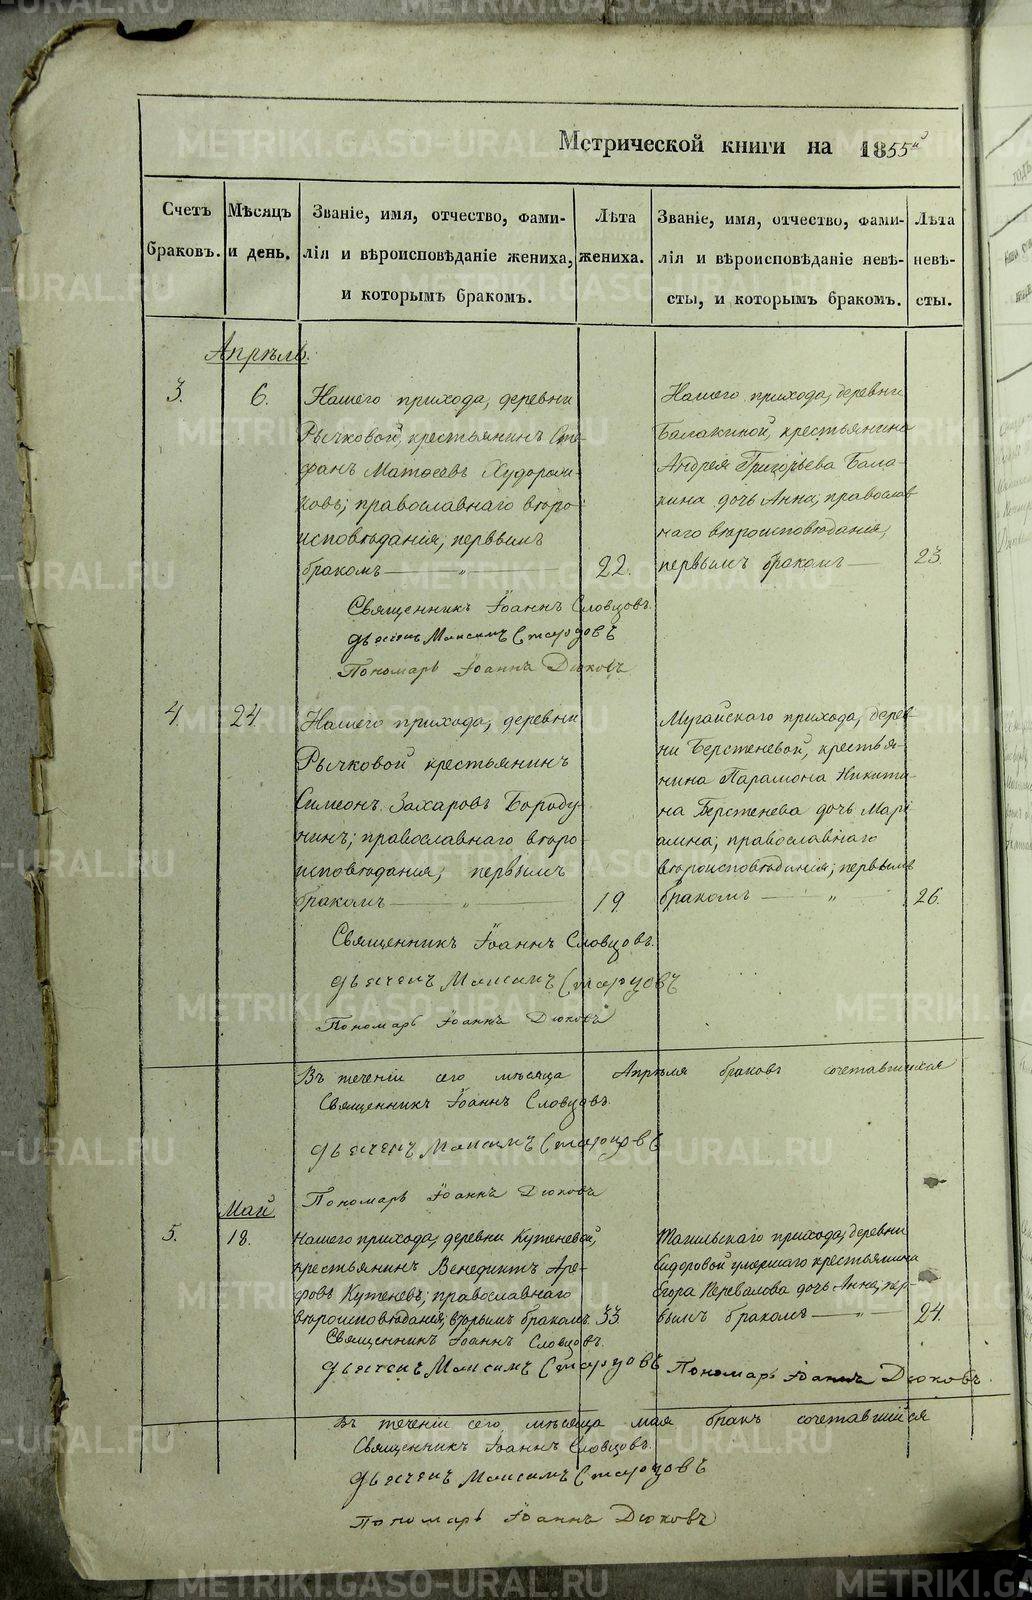 Метрической книги на 1855й
Счетъ браковъ.
Мѣсяцъ и день.
Званіе, имя, отчество, фамилія и вѣроисповѣданіе жениха, и которымъ бракомъ.
Лѣта жениха.
Званіе, имя, отчество, фамилія и вѣроисповѣданіе невѣсты, и которымъ бракомъ.
Лѣта невѣсты.
Апрѣль.
3.
6.
Нашего прихода, деревни
Рычковой, крестьянинъ Сте-
фанъ Матѳеевъ Худорож-
ковъ; православнаго вѣро-
исповѣданія, первымъ
бракомъ — „ —
22.
Нашего прихода, деревни
Балакиной, крестьянина
Андрея Григорьева Бала-
кина дочь Анна; православ-
наго вѣроисповѣданія,
первымъ бракомъ —
23.
Священникъ Іоаннъ Словцовъ.
Дьячекъ Максимъ Старцовъ
Пономарь Іоаннъ Дюковъ
4.
24.
Нашего прихода, деревни
Рычковой крестьянинъ
Симеонъ Захаровъ Бороду-
нинъ; православнаго вѣро-
исповѣданія, первымъ
бракомъ — „ —
19.
Мугайскаго прихода, дерев-
ни Берстеневой, крестья-
нина Парамона Никити-
на Берстенева дочь Марі-
амна; православнаго
вѣроисповѣданія; первымъ
бракомъ — „
26.
Священникъ Іоаннъ Словцовъ.
Дьячекъ Максимъ Старцовъ
Пономарь Іоаннъ Дюковъ
Въ теченіи сего мѣсяца Апрѣля браковъ сочетавшихся
Священникъ Іоаннъ Словцовъ.
Дьячекъ Максимъ Старцовъ
Пономарь Іоаннъ Дюковъ
Май
5.
18.
Нашего прихода, деревни Кутеневой,
крестьянинъ Венедиктъ Аре-
фовъ Кутеневъ; православнаго
вѣроисповѣданія, вторымъ бракомъ
33.
Тагильскаго прихода, деревни
Сидоровой умершаго крестьянина
Егора Перевалова дочь Анна, пер-
вымъ бракомъ — „ —
24.
Священникъ Іоаннъ Словцовъ.
Дьячекъ Максимъ Старцовъ
Пономарь Іоаннъ Дюковъ.
Въ теченіи сего мѣсяца мая бракъ сочетавшійся
Священникъ Іоаннъ Словцовъ.
Дьячекъ Максимъ Старцовъ
Пономарь Іоаннъ Дюковъ
METRIKI.GASO-URAL.RU